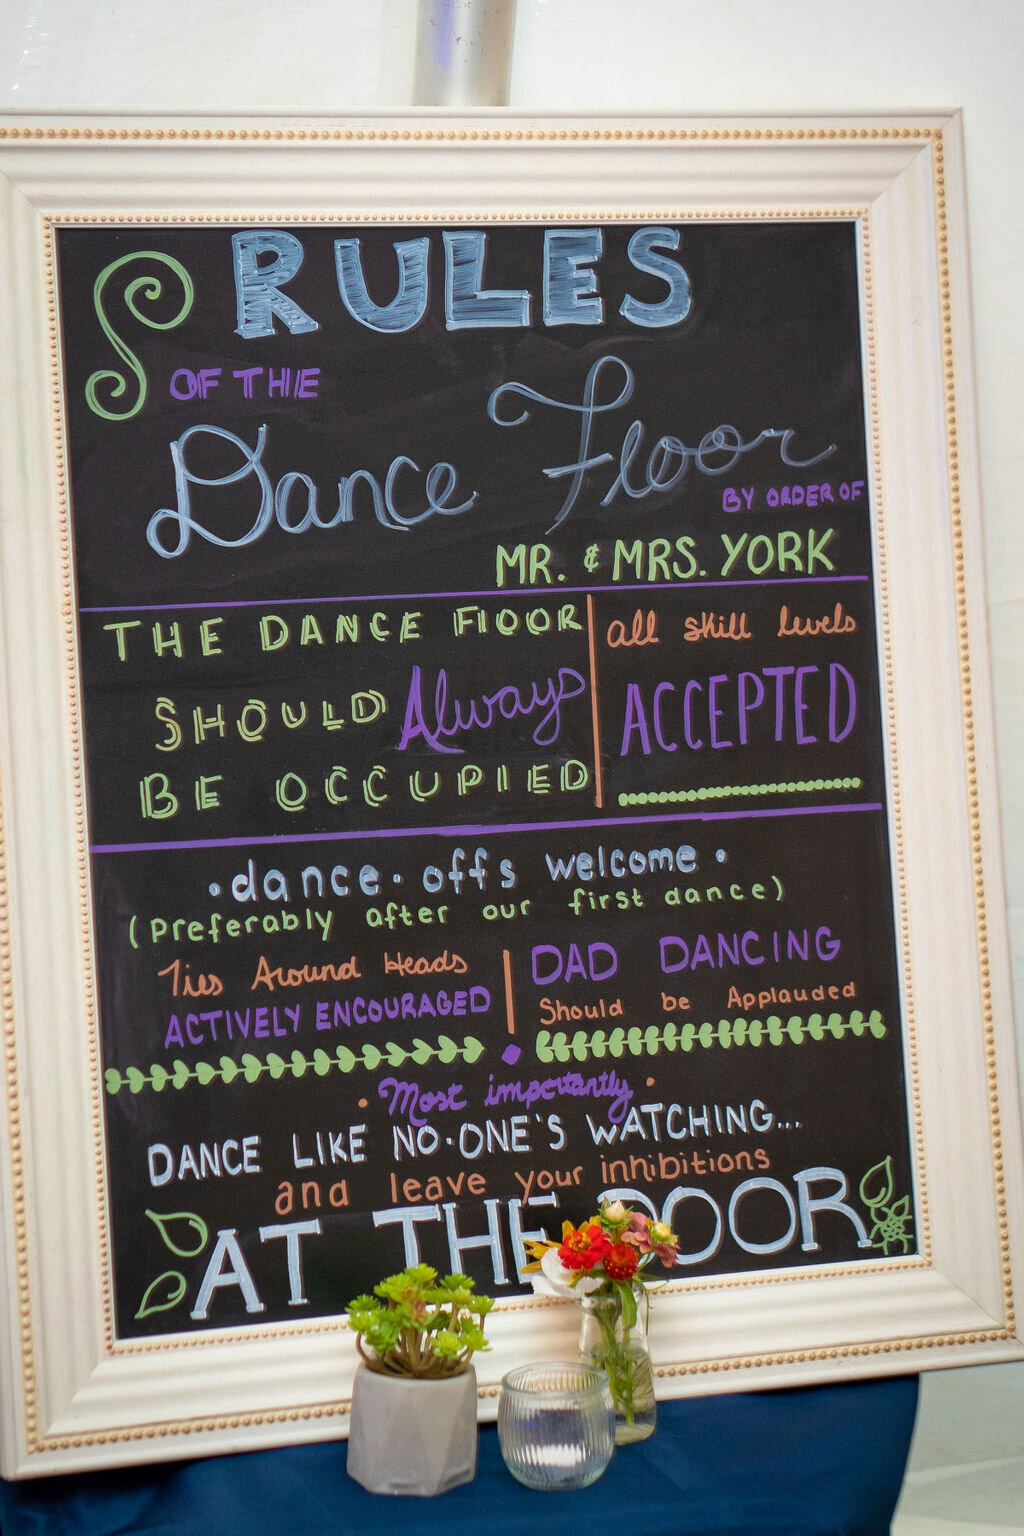 RULES
OF THE
Dance Floor
BY ORDER OF
MR. & MRS. YORK
THE DANCE FLOOR
SHOULD Always
BE OCCUPIED
all skill levels
ACCEPTED
• dance • offs welcome •
(Preferably after our first dance)
Ties Around Heads
ACTIVELY ENCOURAGED
DAD DANCING
Should be Applauded
• Most importantly •
DANCE LIKE NO•ONE'S WATCHING...
and leave your inhibitions
AT THE DOOR